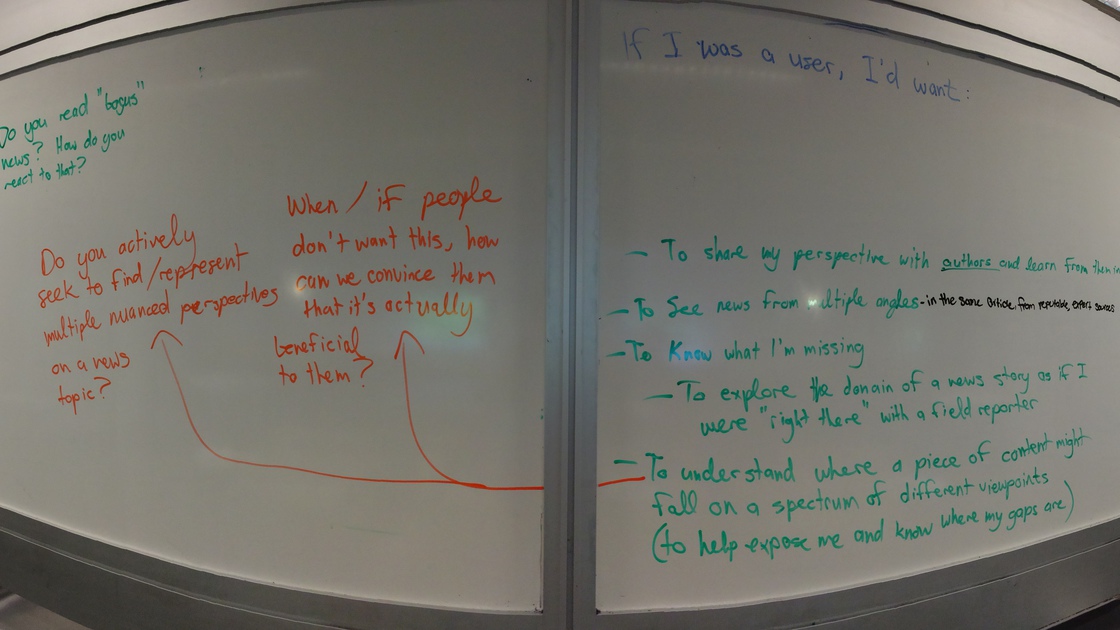 Do you read "bogus"
news? How do you
react to that?
Do you actively
seek to find/represent
multiple nuanced perspectives
on a news
topic?
When / if people
don't want this, how
can we convince them
that it's actually
beneficial
to them?
If I was a user, I'd want:
- To share my perspective with authors and learn from them
- To See news from multiple angles - in the same article, from reputable, expert sources
- To Know what I'm missing
- To explore the domain of a news story as if I
were "right there" with a field reporter
- To understand where a piece of content might
fall on a spectrum of different viewpoints
(to help expose me and know where my gaps are)